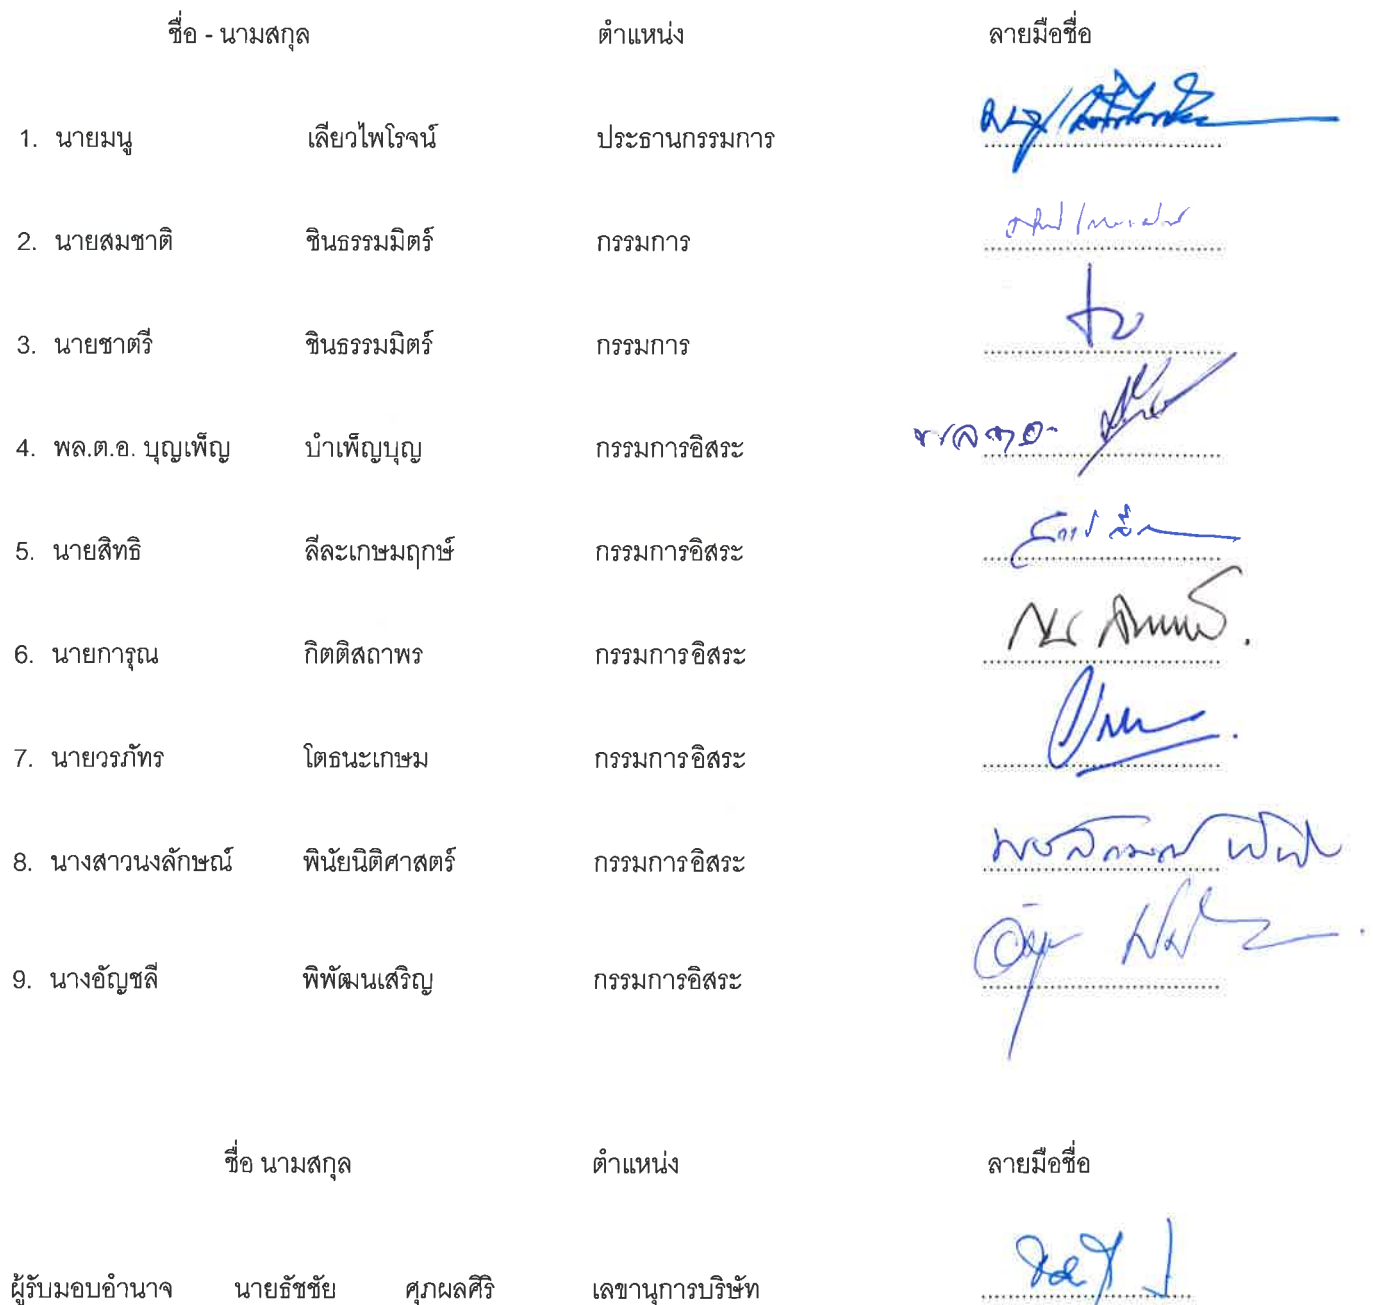 ชื่อ - นามสกุล ตำแหน่ง ลายมือชื่อ
1. นายมนู เลียวไพโรจน์ ประธานกรรมการ
2. นายสมชาติ ชินธรรมมิตร์ กรรมการ
3. นายชาตรี ชินธรรมมิตร์ กรรมการ
4. พล.ต.อ. บุญเพ็ญ บำเพ็ญบุญ กรรมการอิสระ
5. นายสิทธิ ลีละเกษมฤกษ์ กรรมการอิสระ
6. นายการุณ กิตติสถาพร กรรมการอิสระ
7. นายวรภัทร โตธนะเกษม กรรมการอิสระ
8. นางสาวนงลักษณ์ พินัยนิติศาสตร์ กรรมการอิสระ
9. นางอัญชลี พิพัฒนเสริญ กรรมการอิสระ
ชื่อ นามสกุล ตำแหน่ง ลายมือชื่อ
ผู้รับมอบอำนาจ นายธัชชัย ศุภผลศิริ เลขานุการบริษัท